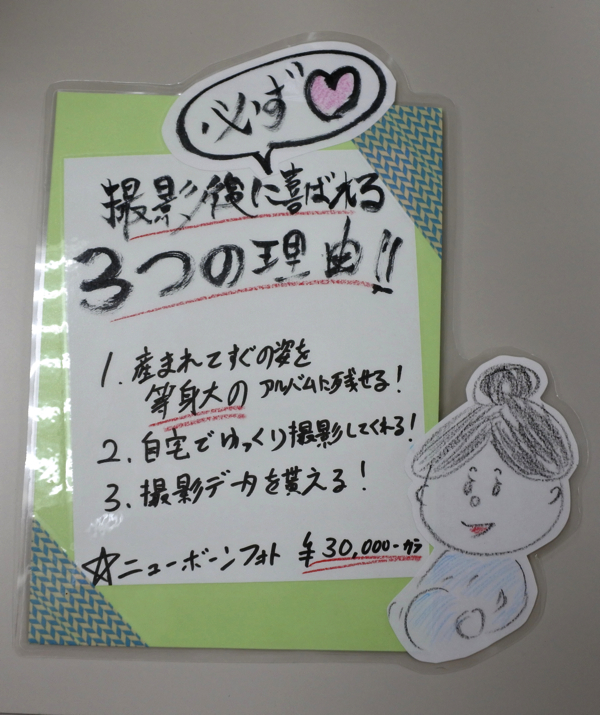 必ず♡
撮影後に喜ばれる
3つの理由!!
1. 産まれてすぐの姿を
等身大の アルバムに残せる!
2. 自宅でゆっくり撮影してくれる!
3. 撮影データを貰える!
☆ニューボーンフォト ¥30,000-カラ